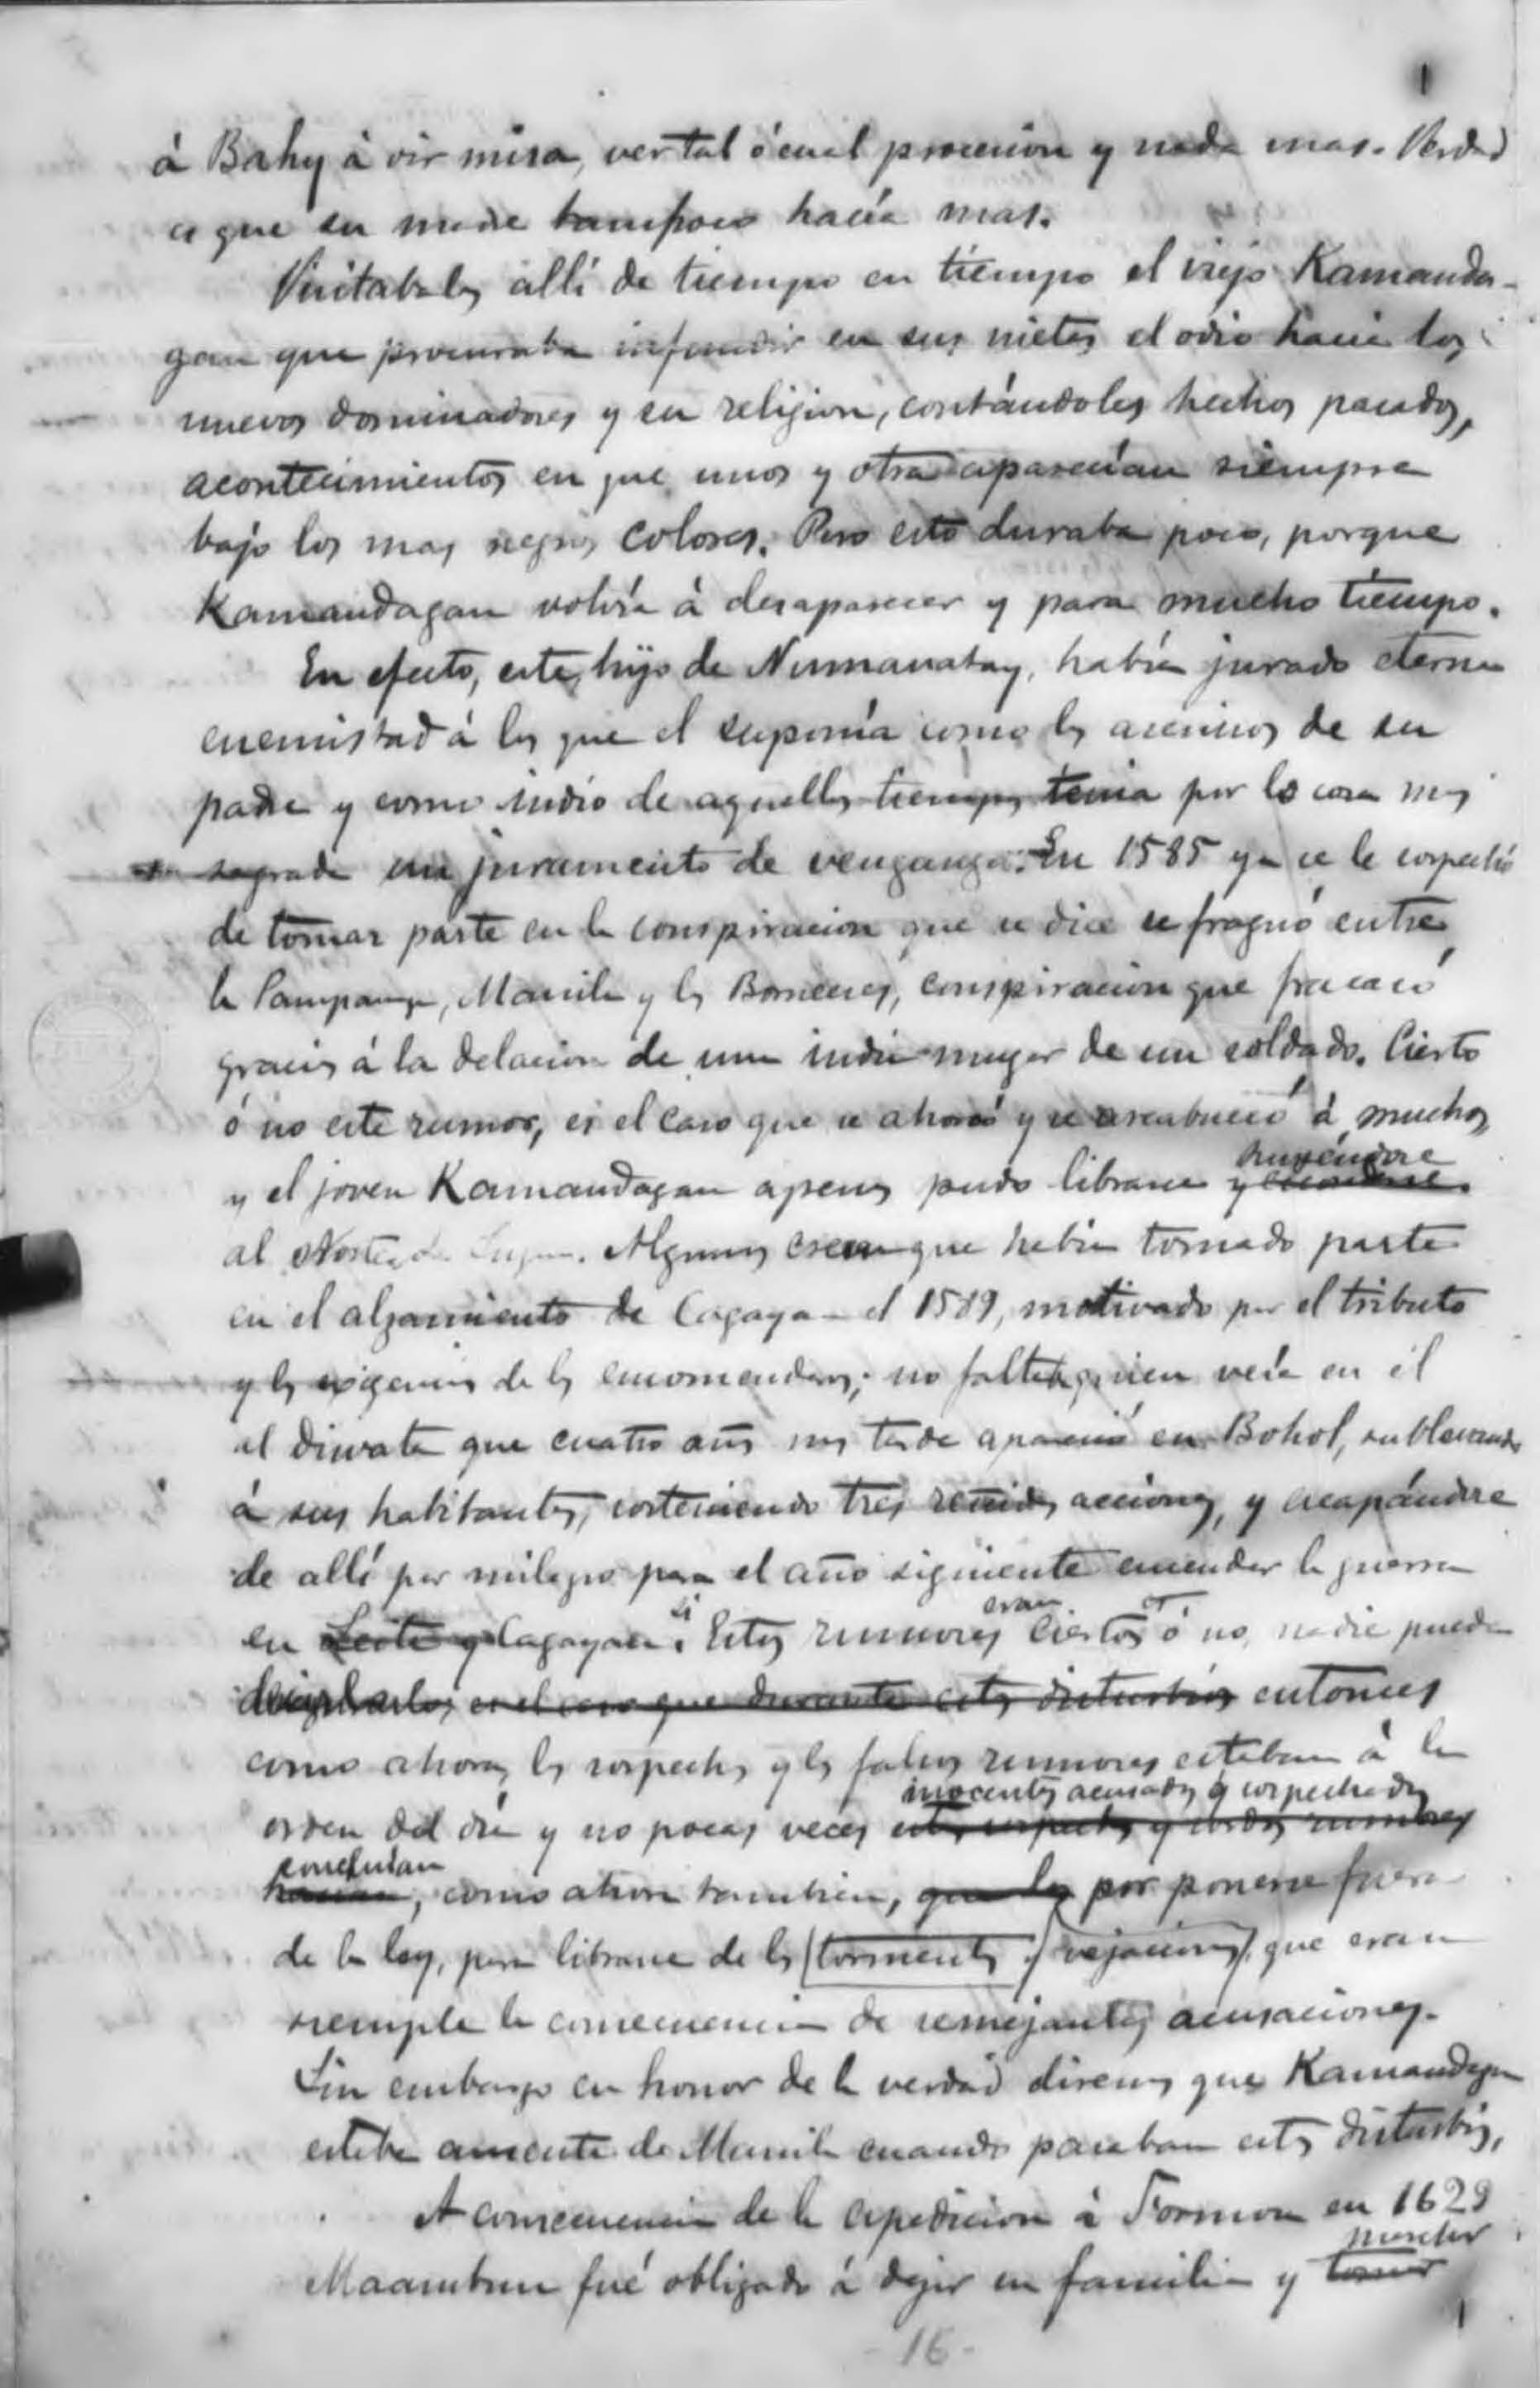 á Bahy á oir misa, ver tal ó cual procesion y nada mas. Verdad
es que su madre tampoco hacía mas.
Visitabales allí de tiempo en tiempo el viejo Kamanda-
gan que procuraba infundir en sus nietos el odio hacia los
nuevos dominadores y su religion, contándoles hechos pasados,
acontecimientos en que unos y otra aparecían siempre
bajo los mas negros colores. Pero esto duraba poco, porque
Kamandagan volvía á desaparecer y para mucho tiempo.
En efecto, este, hijo de Numanatay, había jurado eterna
enemistad á los que el suponía como los asesinos de su
padre y como indio de aquellos tiempos tenia por la cosa mas
sagrada un juramento de venganza. En 1585 ya se le sospechó
de tomar parte en la conspiracion que se dice se fraguó entre
la Pampanga, Manila y los Borneeses, conspiracion que fracasó
gracias á la delacion de una india muger de un soldado. Cierto
ó no este rumor, es el caso que se ahorcó y se arcabuceó á muchos,
huyéndose
y el joven Kamandagan apenas pudo librarse y
al Norte de Luzon. Algunos creen que habia tomado parte
en el alzamiento de Cagayan el 1589, motivado por el tributo
y las exigencias de los encomenderos; no faltaba quien veía en él
al diwata que cuatro años mas tarde apareció en Bohol, sublevando
á sus habitantes, sosteniendo tres reñidas acciones, y escapándose
de allí por milagro para el año siguiente encender la guerra
si eran
en Leite y Cagayan. Estos rumores ciertos ó no, nadie puede
es el caso que durante estos disturbios entonces
como ahora, las sospechas y los falsos rumores estaban á la
inocentes acusados y sospechados
orden del dia y no pocas veces estas sospechas y rumores
concluian
hacian, como ahora tambien, que los por ponerse fuera
de la ley, para librarse de los tormentos y vejaciones, que eran
siempre la consecuencia de semejantes acusaciones.
Sin embargo en honor de la verdad diremos que Kamandagan
estaba ausente de Manila cuando pasaban estos disturbios,
A consecuencia de la expedicion á Formosa en 1629
marchar
Maambun fué obligado á dejar su familia y tomar
-16-